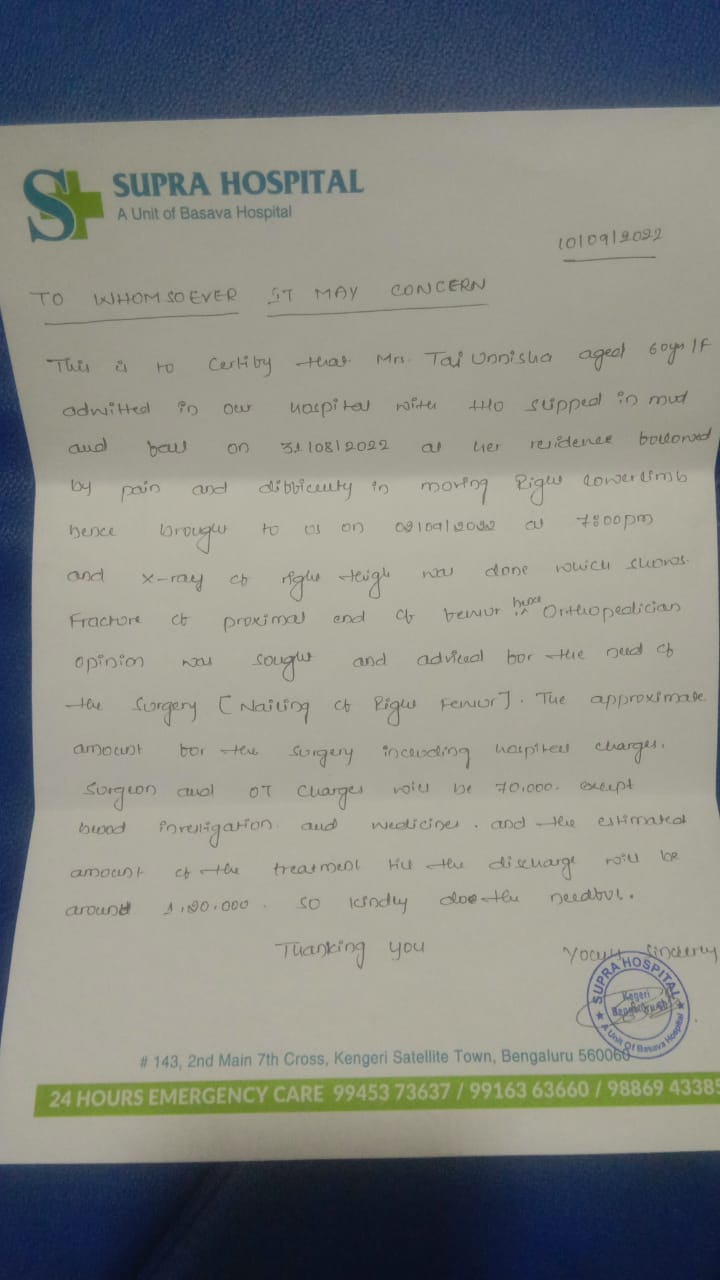 S+ SUPRA HOSPITAL
A Unit of Basava Hospital
10/09/2022
TO WHOMSOEVER IT MAY CONCERN
This is to certify that Mrs. Taj Unnisha aged 60yrs/F
admitted in our hospital with H/o slipped in mud
and fall on 31/08/2022 at her residence followed
by pain and difficulty in moving Right lowerlimb
hence brought to us on 09/09/2022 at 7:00pm
and x-ray of right thigh was done which shows
Fracture of proximal end of femur hence Orthopedician
opinion was sought and adviced for the need of
the surgery [Nailing of Right Femur]. The approximate
amount for the surgery including hospital charges,
surgeon and OT charges will be 70,000. except
blood invesigation and medicines. and the estimated
amount of the treatment till the discharge will be
around 1,20,000. so kindly do the needful.
Thanking you
Yours sincerly
SUPRA HOSPITAL
A Unit Of Basava Hospital
# 143, 2nd Main 7th Cross, Kengeri Satellite Town, Bengaluru 560060
24 HOURS EMERGENCY CARE 99453 73637 / 99163 63660 / 98869 43385